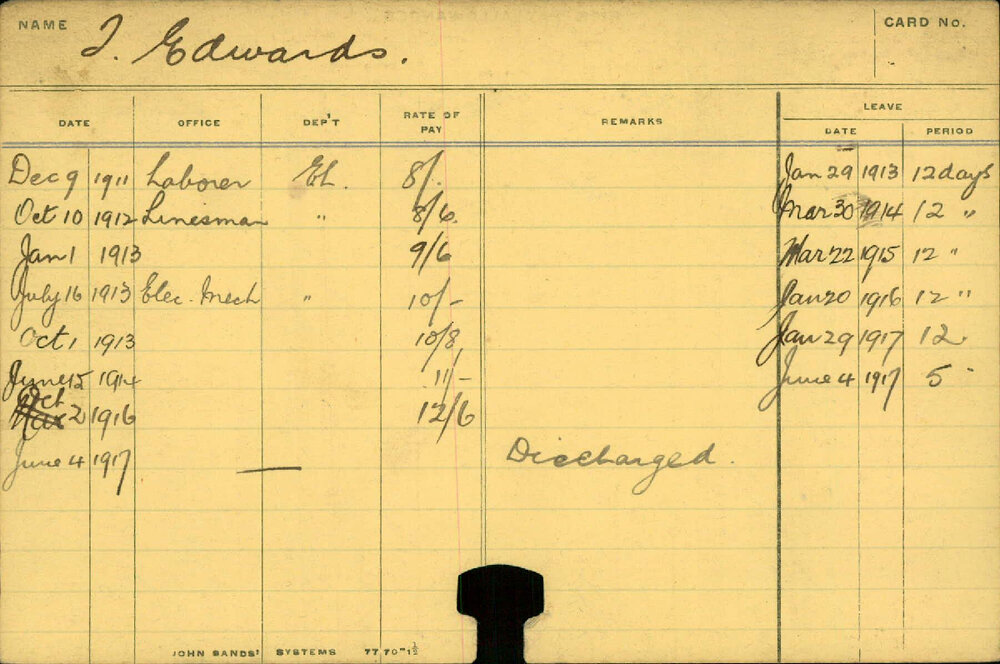 NAME T. Edwards. CARD No.
LEAVE
DATE OFFICE DEP'T RATE OF PAY REMARKS DATE PERIOD
Dec 9 1911 Laborer El. 8/. Jan 29 1913 12 days
Oct 10 1912 Linesman " 8/6. Mar 30 1914 12 "
Jan 1 1913 9/6 Mar 22 1915 12 "
July 16 1913 Elec. Mech " 10/- Jan 20 1916 12 "
Oct 1 1913 10/8 Jan 29 1917 12.
June 15 1914 11/- June 4 1917 5 "
Oct
Mar 2 1916 12/6
June 4 1917 — Discharged.
JOHN SANDS' SYSTEMS 7770-1½